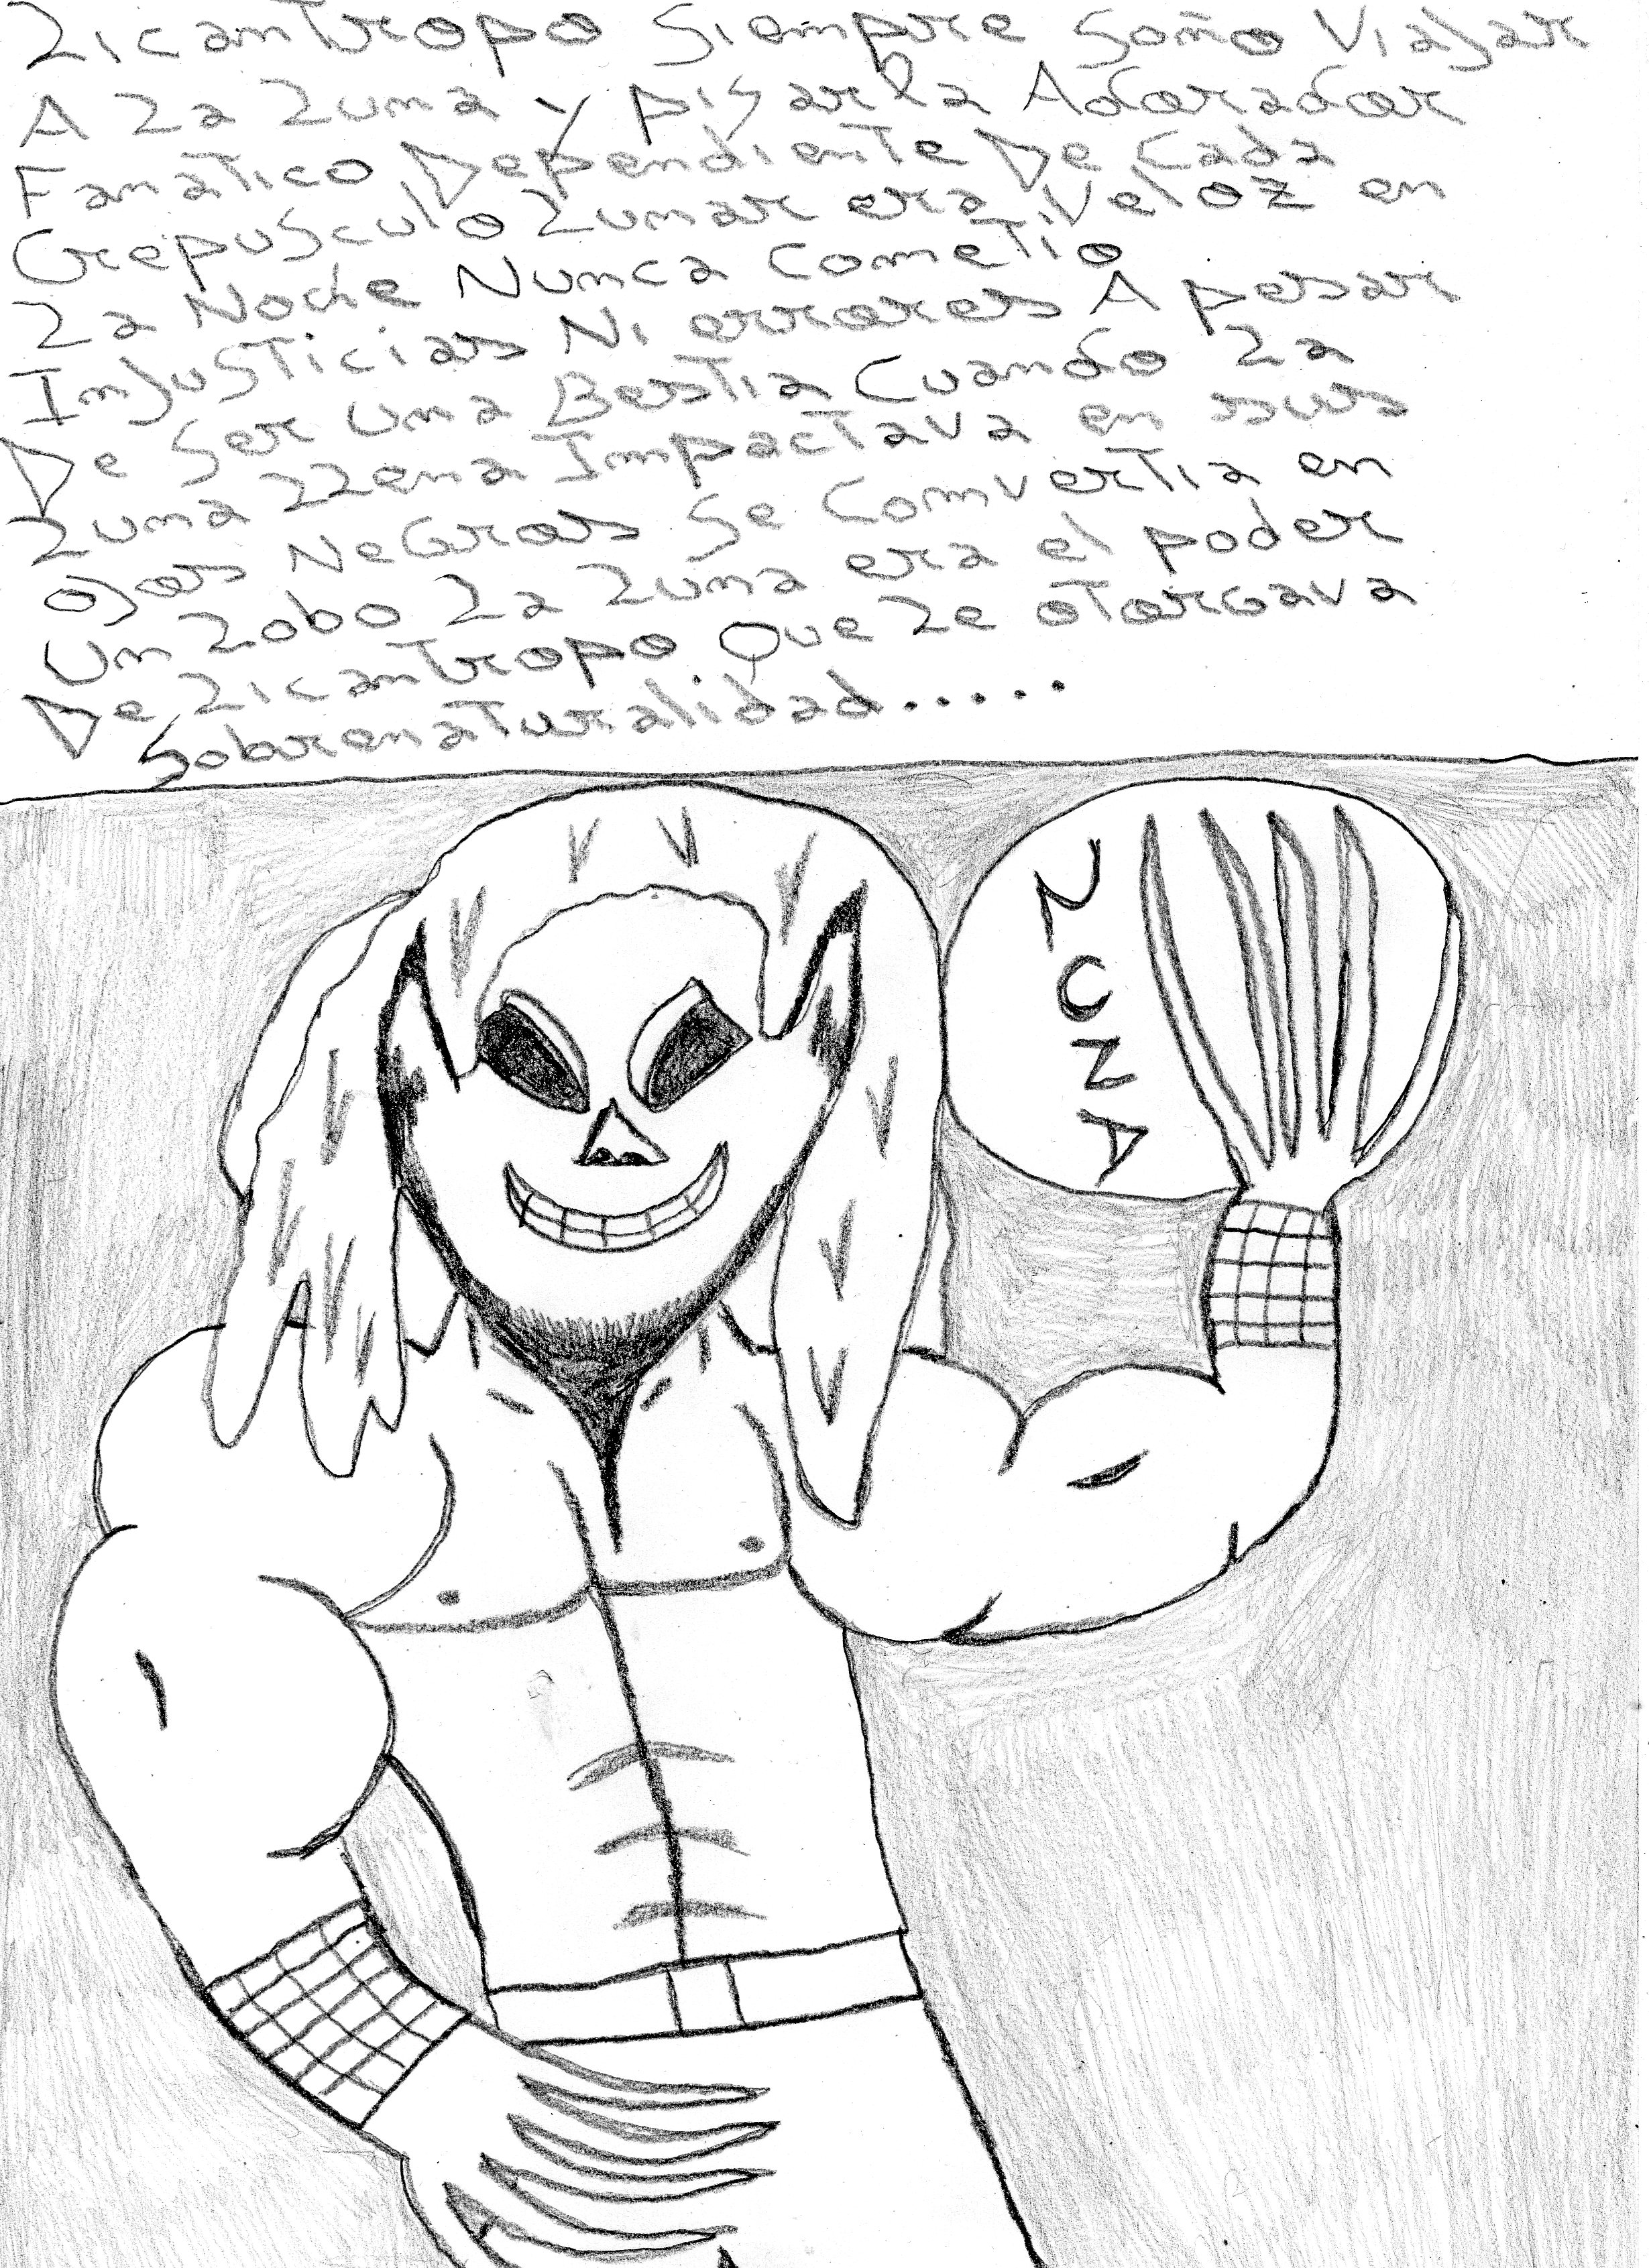 Licantropo Siempre Soño Viajar
A La Luna y pisarla Adorador
Fanatico Dependiente De Cada
Crepusculo Lunar era Veloz en
La Noche Nunca Cometio
Injusticias Ni errores A pesar
De Ser una Bestia Cuando La
Luna LLena Impactava en sus
ojos Negros Se Comvertia en
Un Lobo La Luna era el poder
De Licantropo Que Le otorgava
Sobrenaturalidad.....
LUNA